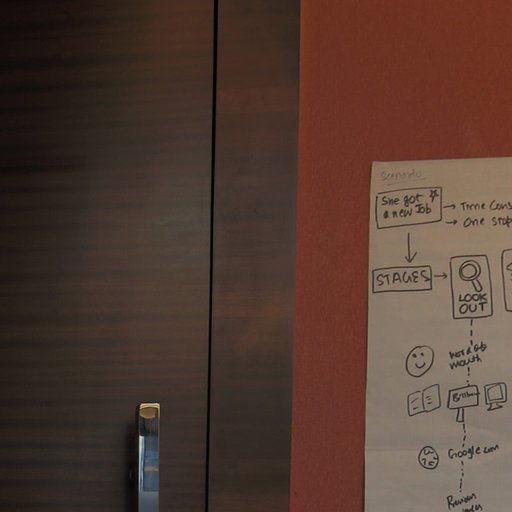 Scenario
She got
a new Job
→ Time Cons
→ One Stop
STAGES
LOOK
OUT
word of
mouth
Google.com